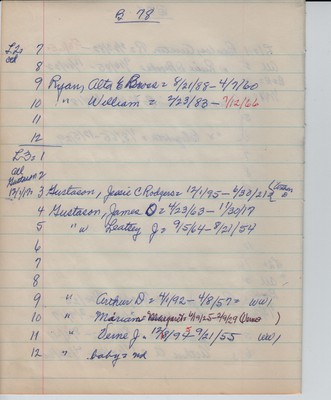 B 78
L2= 7
old 8
9 Ryan, Alta E Bross = 8/21/88 - 4/7/60
10 " William = 2/23/83 - 7/12/66
11
12
L-3= 1
all 2
3 Gustason, Jessie C Rodgers = 12/1/95 - 4/30/21
4 Gustason, James O = 4/23/63 - 1/30/17
5 " " Leattey J = 9/5/64 - 8/21/54
6
7
8
9 " Arthur D = 4/1/92 - 4/8/57 = WW1
10 " Marian = Margurite 4/19/25 - 2/9/29 (Verne)
11 " Verne J. = 12/8/94 - 9/21/55 WW1
12 " baby = nd